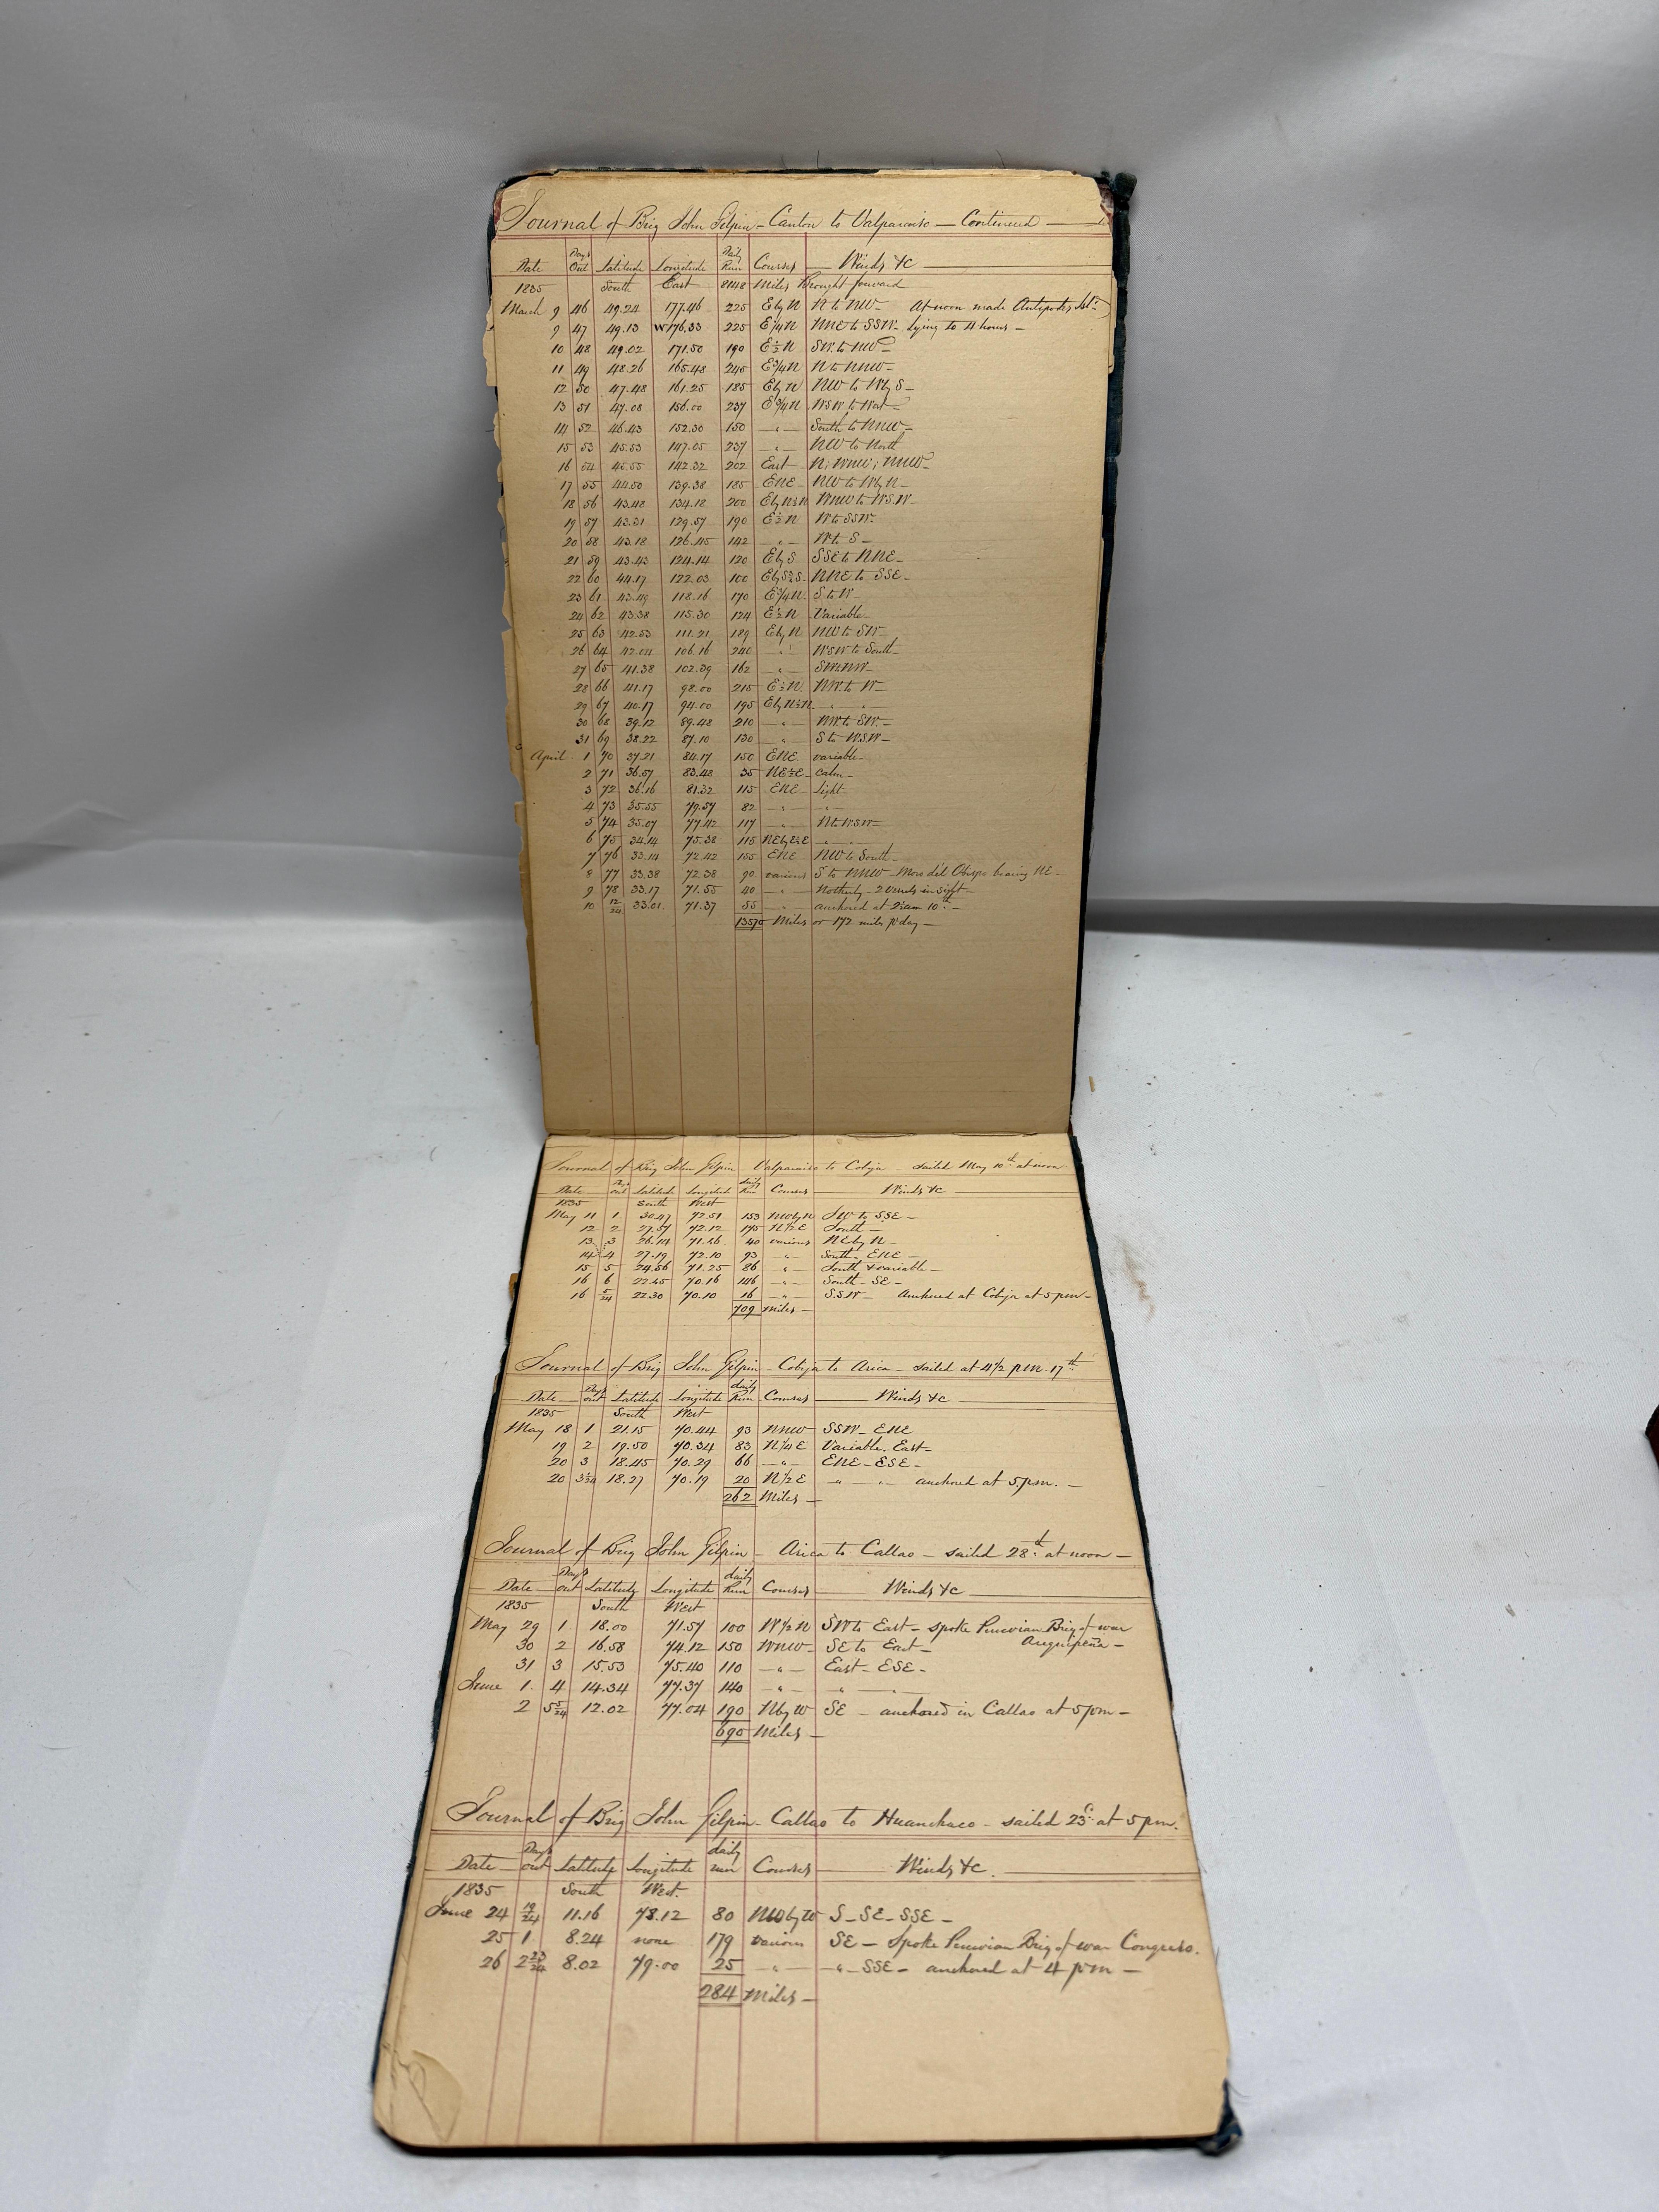 Journal of Brig John Gilpin - Canton to Valparaiso - Continued -
Date Days Out Latitude Longitude Daily Run Courses Winds &c
1835 South East 8148 Miles Brought forward
March 9 46 49.24 177.46 225 E by N N to NW - At noon made Antipodes Isl.
9 47 49.13 W176.33 225 E 1/4 N NNE to SSW - Lying to 4 hours -
10 48 49.02 171.50 190 E 1/2 N SW to NW -
11 49 48.26 165.48 245 E 3/4 N N to NNW -
12 50 47.48 161.25 185 E by N NW to W by S -
13 51 47.08 156.00 237 E 3/4 N WSW to West -
14 52 46.43 152.30 150 - " - South to NNW -
15 53 45.53 147.05 237 - " - NW to North
16 54 45.55 142.32 202 East N; WNW; NNW -
17 55 44.50 139.38 185 ENE NW to W by N -
18 56 43.48 134.18 200 E by N 1/2 N WNW to WSW -
19 57 43.31 129.57 190 E 1/2 N W to SSW -
20 58 43.18 126.45 142 - " - W to S -
21 59 43.43 124.14 120 E by S SSE to NNE -
22 60 44.17 122.03 100 E by S 1/2 S - NNE to SSE -
23 61 43.49 118.16 170 E 3/4 N S to W -
24 62 43.38 115.30 124 E 1/2 N Variable -
25 63 42.53 111.21 189 E by N NW to SW -
26 64 42.04 106.16 240 - " - WSW to South -
27 65 41.38 102.39 162 - " - SW NW -
28 66 41.17 98.00 215 E 1/2 N NW to W -
29 67 40.17 94.00 195 E by N 1/2 N - " - " -
30 68 39.12 89.48 210 - " - NW to SW -
31 69 38.22 87.10 130 - " - S to WSW -
April 1 70 37.21 84.17 150 ENE variable -
2 71 36.57 83.48 35 NE 1/2 E - calm -
3 72 36.16 81.32 115 ENE Light
4 73 35.55 79.57 82 - " - - " -
5 74 35.07 77.42 117 - " - N to WSW -
6 75 34.14 75.38 115 NE by E 1/2 E - " -
7 76 33.14 72.42 155 ENE NW to South -
8 77 33.38 72.38 90 various S to NNW - Moro del Obispo bearing NE -
9 78 33.17 71.55 40 - " - Northerly - 2 vessels in sight -
10 12/24 33.01 71.37 55 - " - anchored at 2 am 10th -
13570 Miles or 172 miles pr day -
Journal of Brig John Gilpin - Valparaiso to Cobija - sailed May 10th at noon
Date Days out Latitude Longitude daily Run Courses Winds &c
1835 South West
May 11 1 30.47 72.51 153 NW by N SW to SSE -
12 2 27.57 72.12 175 N 1/2 E South -
13 3 26.14 71.26 40 various NE by N -
14 4 27.19 72.10 93 - " - South - ENE -
15 5 24.56 71.25 86 " South & variable -
16 6 22.45 70.16 146 - " - South - SE -
16 5/24 22.30 70.10 16 - " - SSW - Anchored at Cobija at 5 pm -
709 Miles -
Journal of Brig John Gilpin - Cobija to Arica - sailed at 4 1/2 P.M. 17th
Date Days out Latitude Longitude daily Run Courses Winds &c
1835 South West
May 18 1 21.15 70.44 93 NNW SSW - ENE
19 2 19.50 70.34 83 N 1/4 E Variable. East -
20 3 18.45 70.29 66 - " - ENE - ESE -
20 3 5/24 18.27 70.19 20 N 1/2 E " " anchored at 5 pm. -
262 Miles -
Journal of Brig John Gilpin - Arica to Callao - sailed 28th at noon -
Date Days out Latitude Longitude daily Run Courses Winds &c
1835 South West
May 29 1 18.00 71.57 100 W 1/2 N SW to East - spoke Peruvian Brig of war
30 2 16.58 74.12 150 WNW - SE to East - Arequipeña -
31 3 15.53 75.40 110 - " - East - ESE -
June 1. 4 14.34 77.37 140 - " - " -
2 5 5/24 12.02 77.04 190 N by W SE - anchored in Callao at 5 pm -
690 Miles -
Journal of Brig John Gilpin - Callao to Huanchaco - sailed 23d at 5 pm.
Date Days out Latitude Longitude daily run Courses Winds &c.
1835 South West.
June 24 19/24 11.16 78.12 80 NW by W S - SE - SSE -
25 1 8.24 none 179 various SE - Spoke Peruvian Brig of war Congreso.
26 2 23/24 8.02 79.00 25 - " - " - SSE - anchored at 4 pm -
284 Miles -